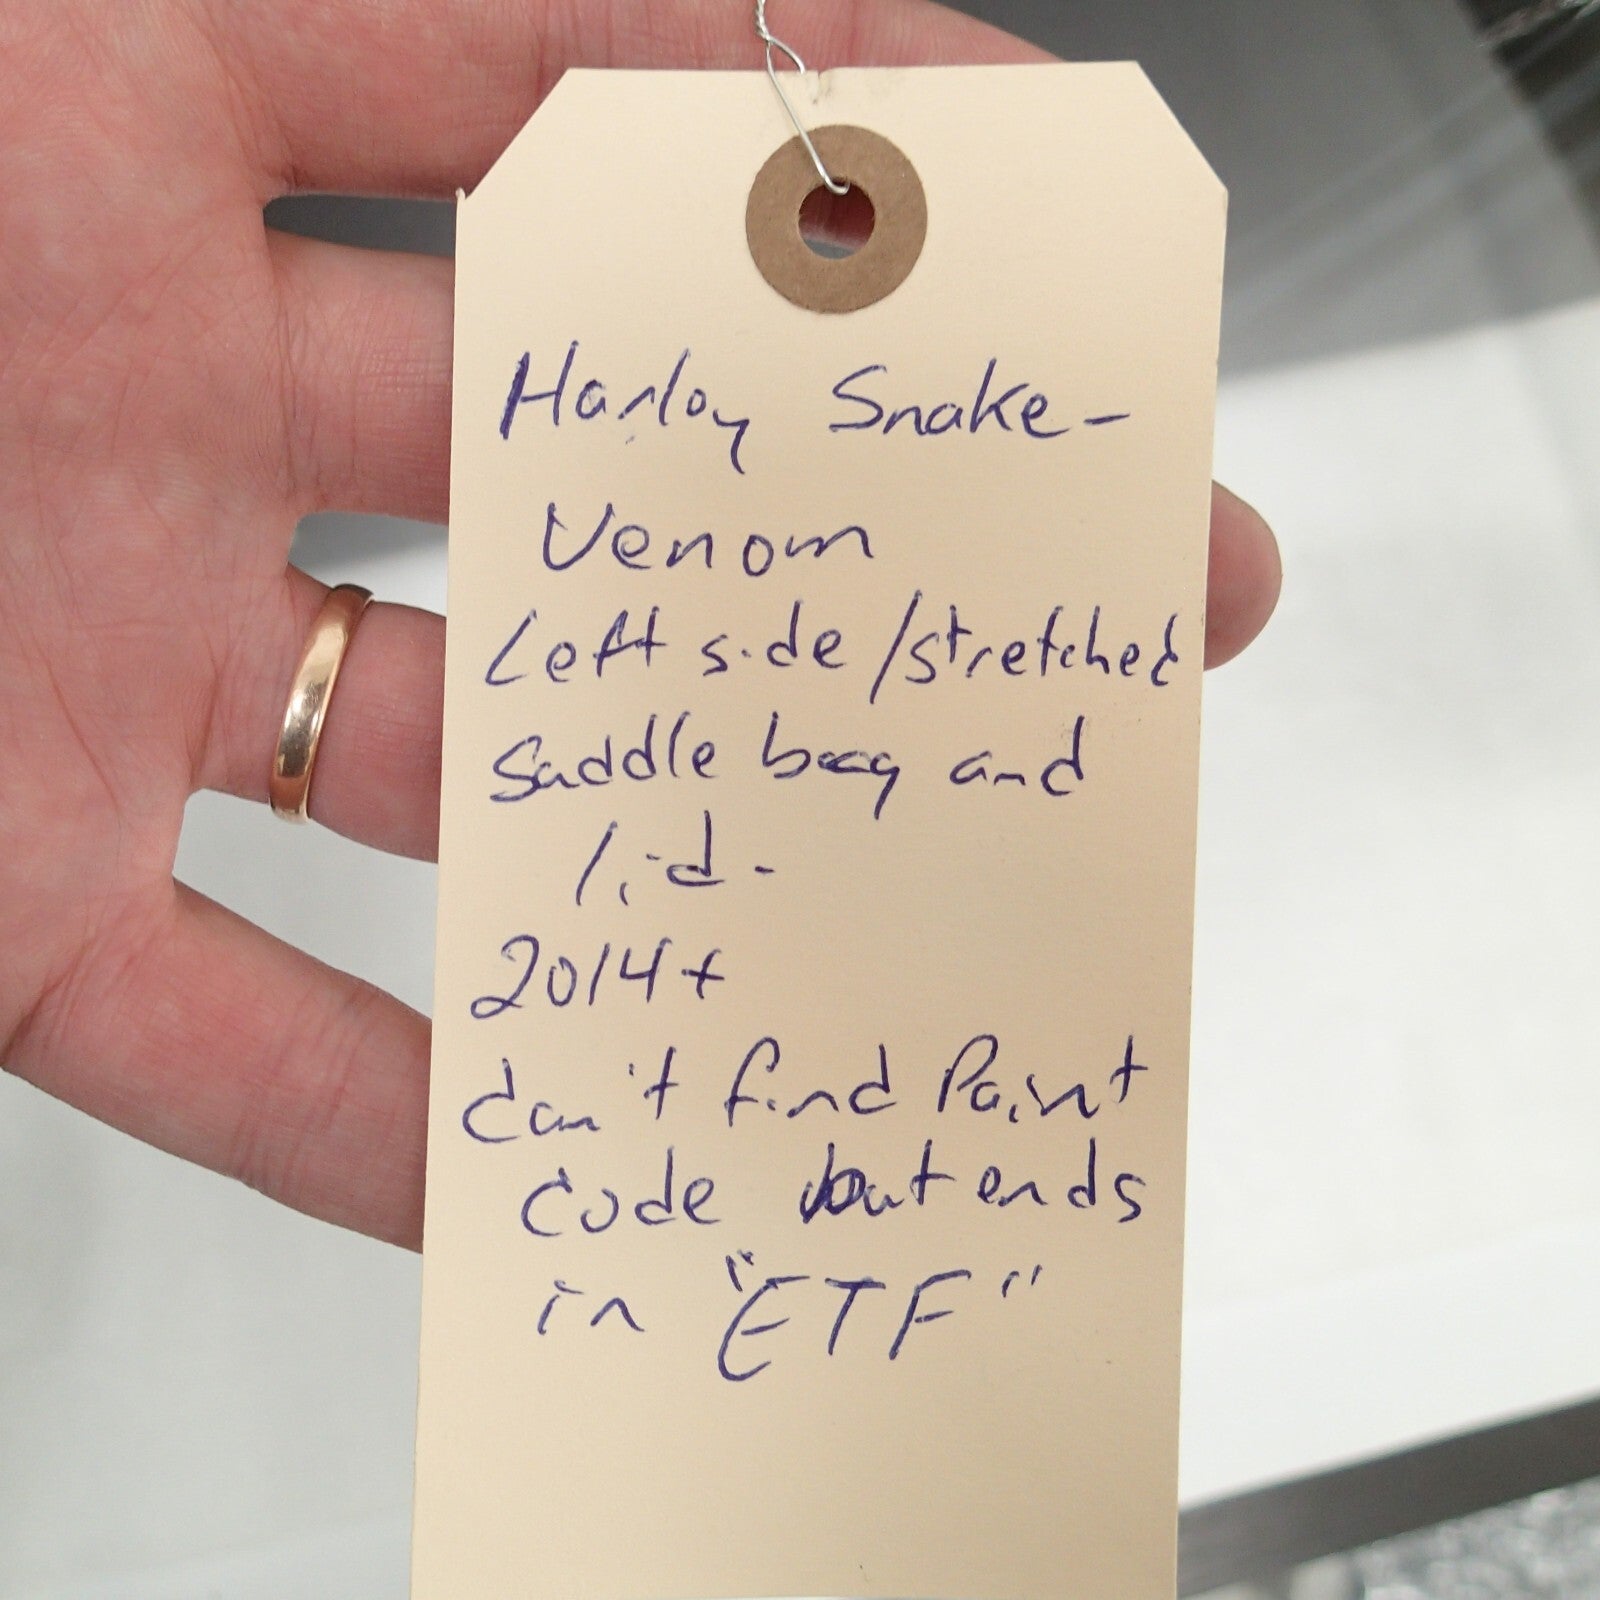 Harley Snake-
Venom
Left side/stretched
Saddle bag and
lid-
2014+
Can't find Paint
Code but ends
in "ETF"